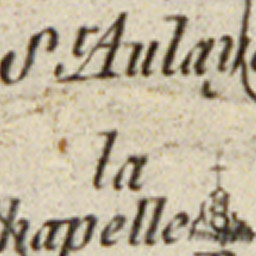 Sr. Aulaye
la
Chapelle